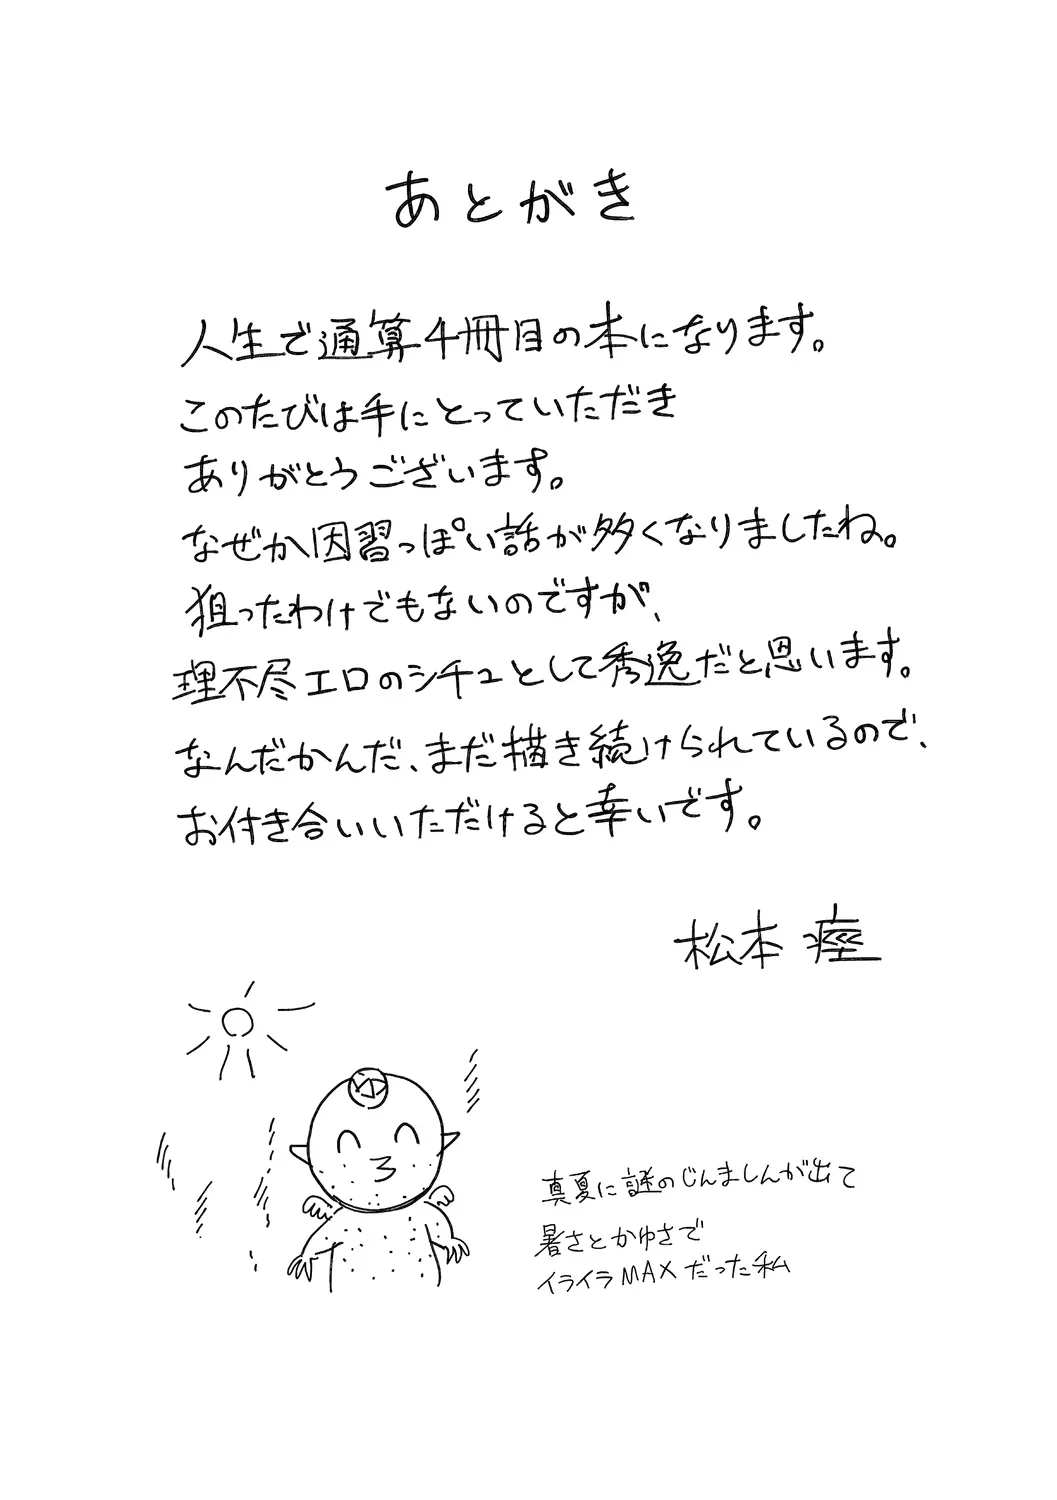 あとがき
人生で通算4冊目の本になります。
このたびは手にとっていただき
ありがとうございます。
なぜか因習っぽい話が多くなりましたね。
狙ったわけでもないのですが、
理不尽エロのシチュとして秀逸だと思います。
なんだかんだ、まだ描き続けられているので、
お付き合いいただけると幸いです。
松本痙
真夏に謎のじんましんが出て
暑さとかゆさで
イライラMAXだった私